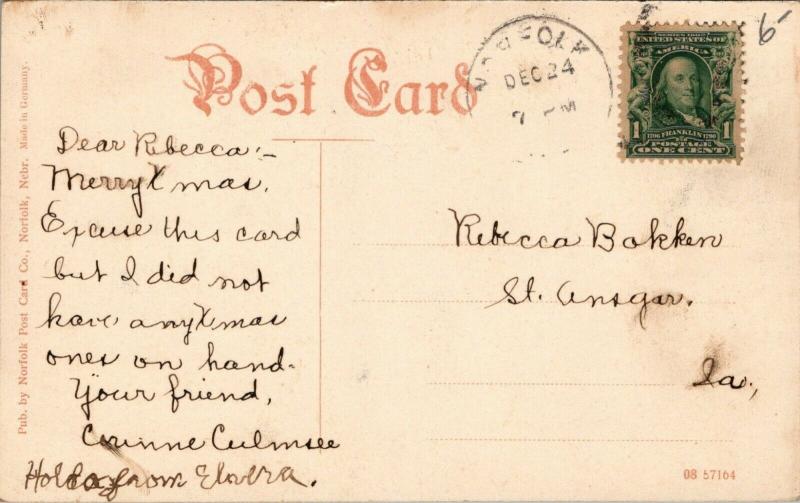 Post Card
NORFOLK
DEC 24
7 PM
SERIES 1902
UNITED STATES OF
AMERICA
1 1706 FRANKLIN 1790 1
POSTAGE
ONE CENT
6
Dear Rebecca:-
Merry Xmas.
Excuse this card
but I did not
have any Xmas
ones on hand.
Your friend,
Corinne Culmsee
from Elvera.
Rebecca Bakken
St. Ansgar.
Ia.,
Pub. by Norfolk Post Card Co., Norfolk, Nebr. Made in Germany.
08 57164